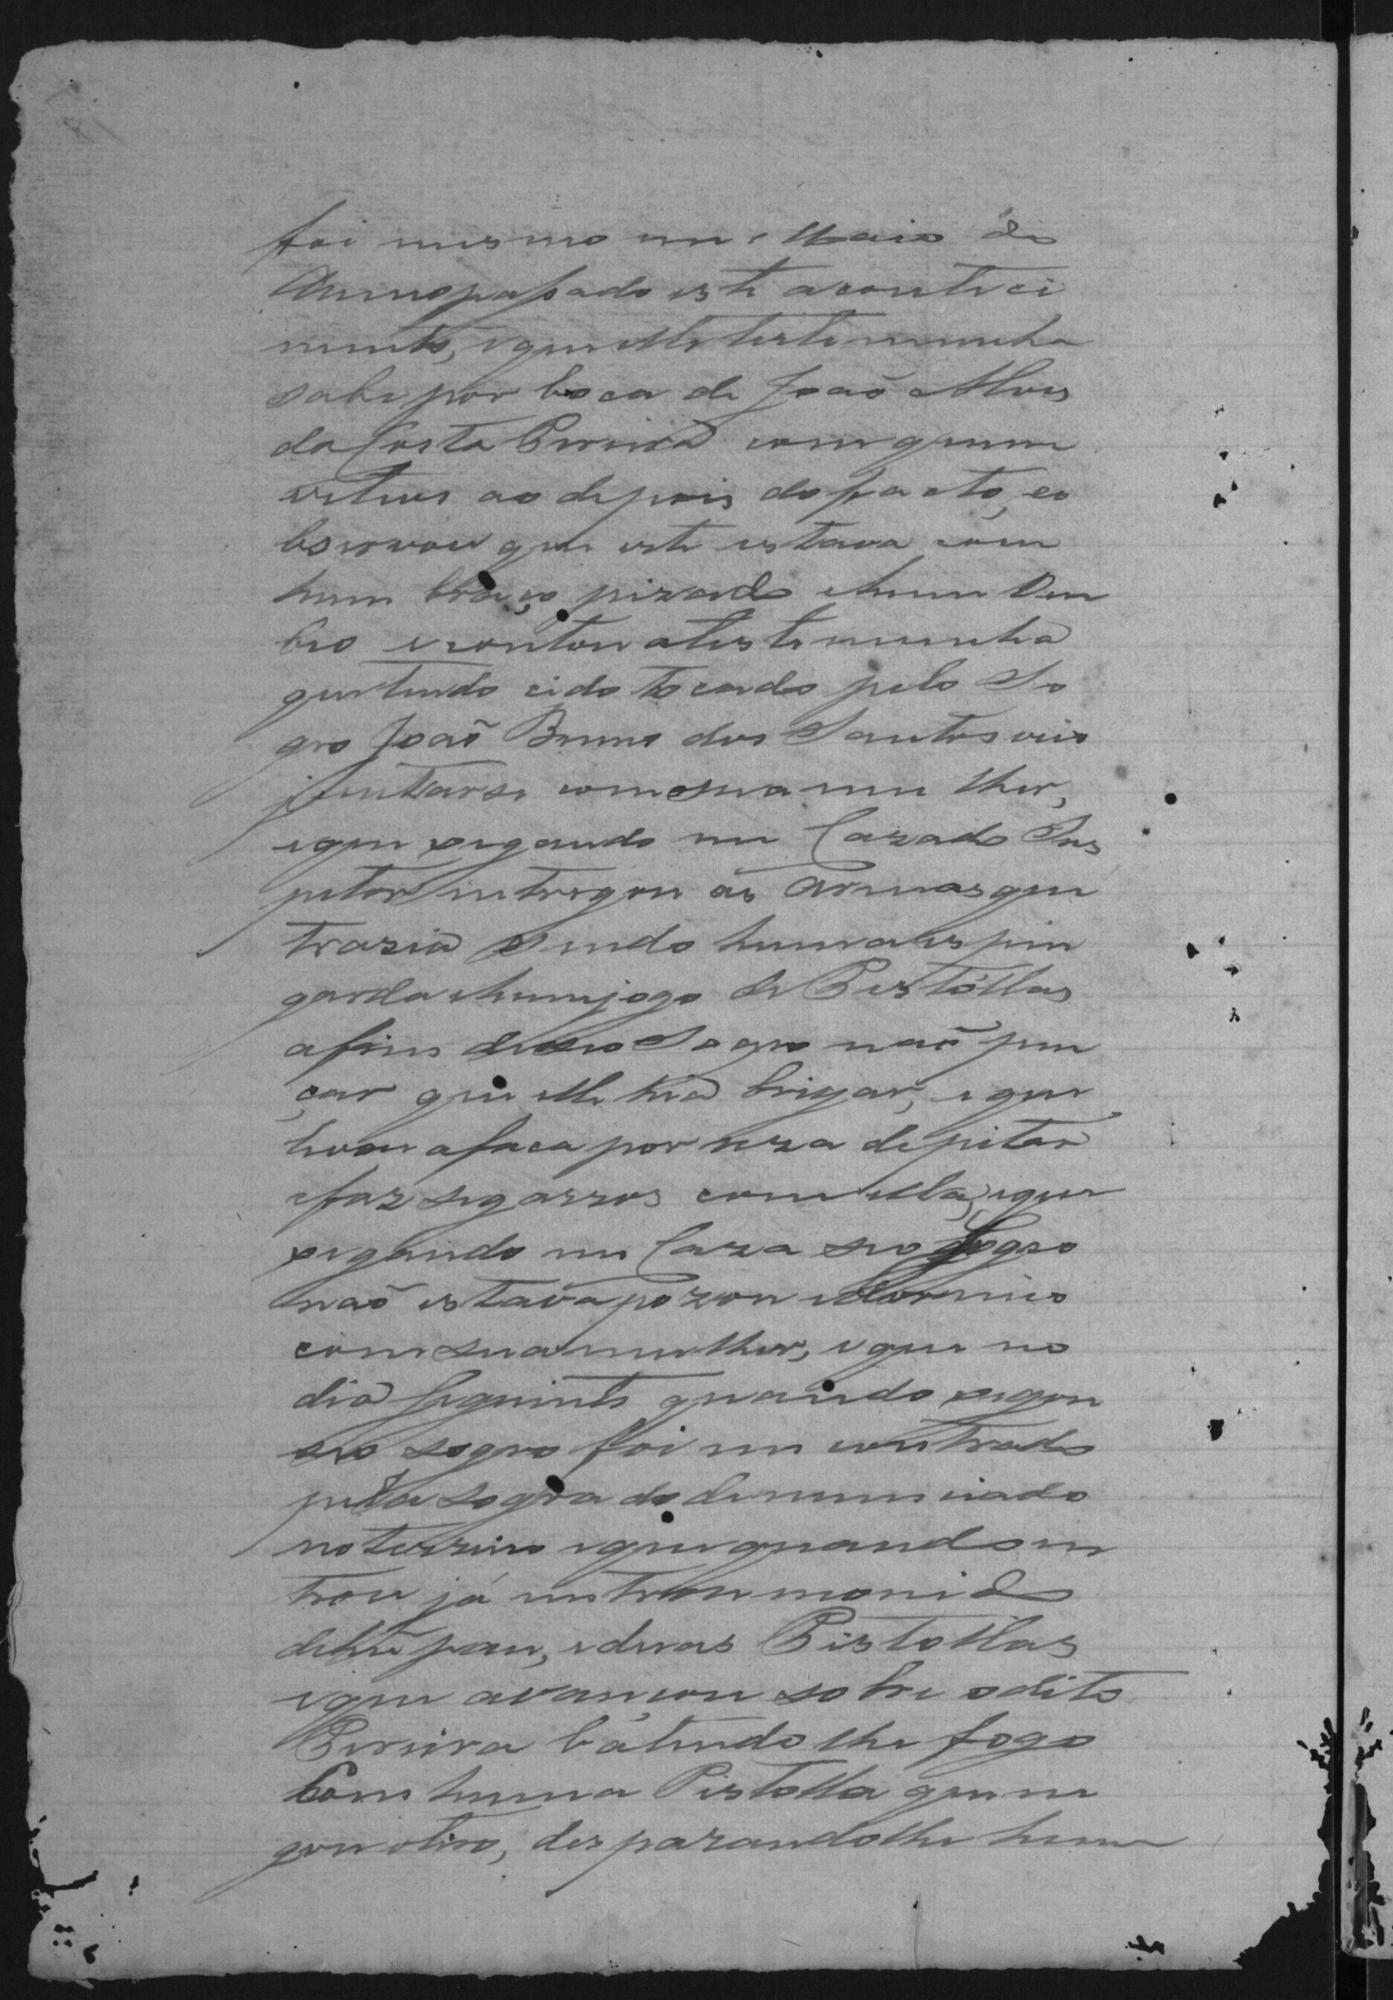 foi mesmo em Maio do
Annopassado este aconteci
mento, eque elle testemunha
sabe por boca de João Alves
da Costa Pereira com quem
esteve ao depois do facto, eo
bservou que este estava com
hum braço pizado ehum Om
bro econtou atestemunha
quetendo cido tocado pelo So
gro João Bruno dos Santos veio
juntarse comsua mulher,
eque xegando em Cazado Ins
petor entregou as armas que
trazia sendo huma espin
garda ehum jogo de Pistollas
afim deseo Sogro não pen
çar que elle hia brigar, eque
levou afaca por uza de pitar
efaz segarros com ella, eque
xegando em Caza seo Sogro
não estava pozou edormio
com sua mulher, eque no
dia seguinte quando xegou
seo sogro foi em contrado
pella sogra do denunciado
noterreiro eque quando en
trou já entrou monido
dehũ pau, eduas Pistollas
eque avançou sobre odito
Pereira bátendo lhe fogo
Com huma Pistolla que ne
gou otiro, desparandolhe huma